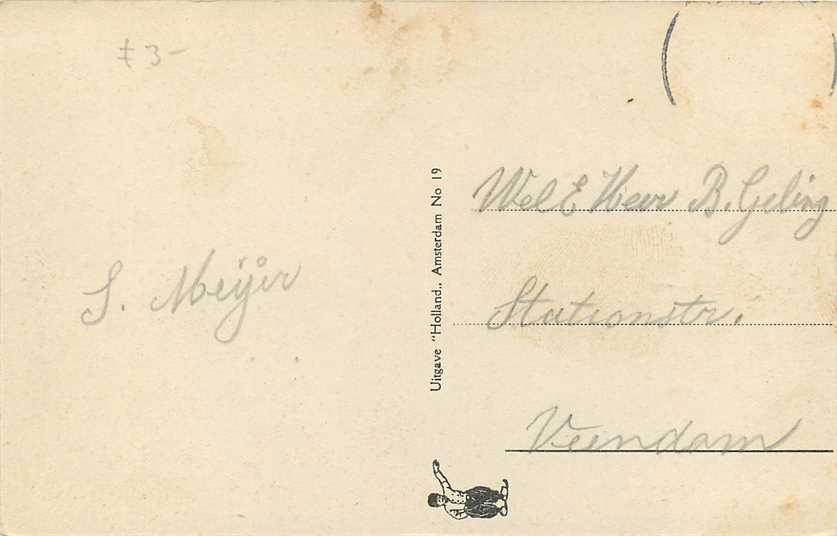 ƒ 3-
S. Meijer
Uitgave "Holland., Amsterdam No 19
Wel E Heer B. Geling
Stationstr.
Veendam